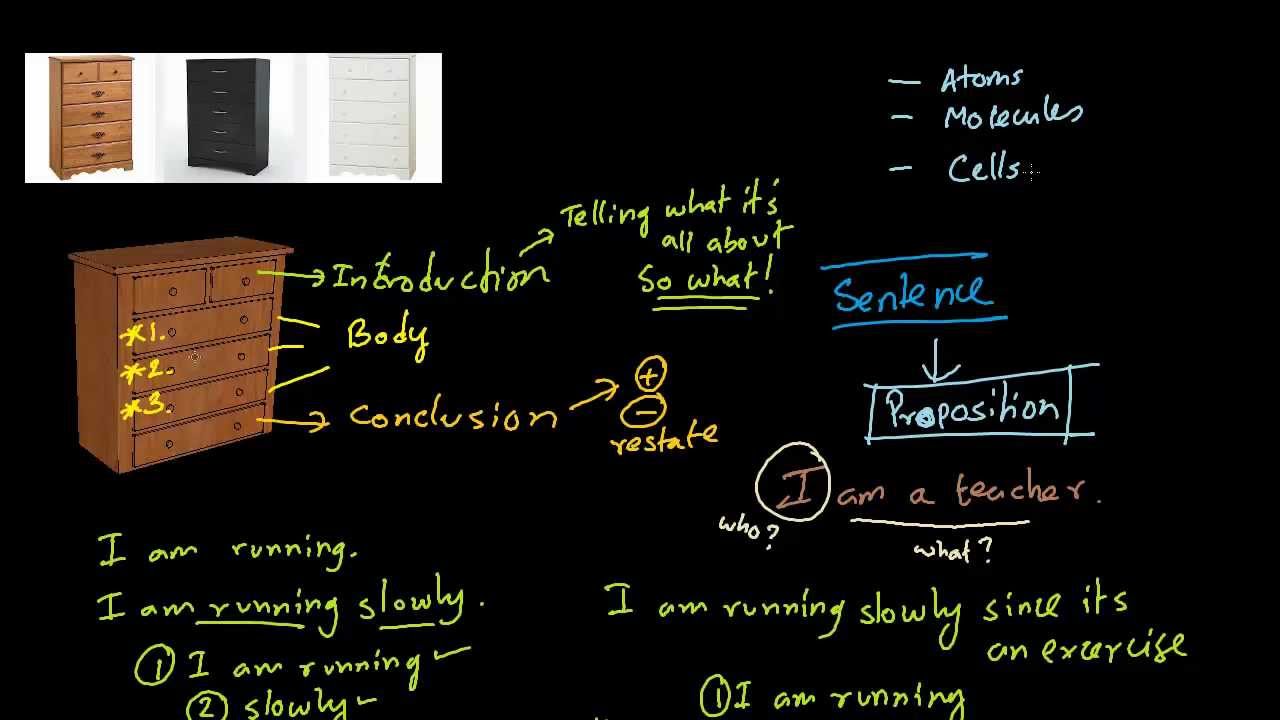 — Atoms
— Molecules
— Cells
Telling what it's
all about
So what!
Introduction
*1.
*2.
*3.
Body
Conclusion
+
−
restate
Sentence
Proposition
I am a teacher.
who?
what?
I am running.
I am running slowly.
① I am running
② slowly
I am running slowly since its
an excercise
① I am running